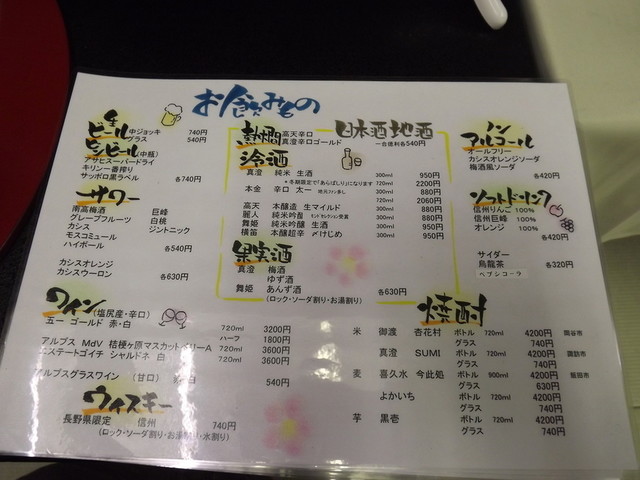 お飲みもの
生ビール 中ジョッキ 740円
グラス 540円
ビンビール(中瓶)
アサヒスーパードライ
キリン一番搾り
サッポロ黒ラベル 各740円
サワー
南高梅酒 巨峰
グレープフルーツ 白桃
カシス ジントニック
モスコミュール
ハイボール 各540円
カシスオレンジ
カシスウーロン 各630円
ワイン(塩尻産・辛口)
五一 ゴールド 赤・白 720ml 3200円
ハーフ 1800円
アルプス MdV 桔梗ヶ原マスカットベリーA 720ml 3600円
エステートゴイチ シャルドネ 白 720ml 3600円
アルプスグラスワイン (甘口) 白 540円
ウィスキー
長野県限定 信州 740円
(ロック・ソーダ割り・お湯割り・水割り)
日本酒地酒
熱燗 高天辛口
真澄辛口ゴールド 一合徳利各540円
冷酒
真澄 純米 生酒 300ml 950円
*冬期限定で「あらばしり」になります 720ml 2200円
本金 辛口 太一 300ml 880円
720ml 2060円
高天 本醸造 生マイルド 300ml 880円
麗人 純米吟醸 モンドセレクション受賞 300ml 880円
舞姫 純米吟醸 生酒 300ml 950円
横笛 本醸超辛 〆けじめ 300ml 950円
果実酒
真澄 梅酒
ゆず酒
舞姫 あんず酒 各630円
(ロック・ソーダ割り・お湯割り)
ノンアルコール
オールフリー
カシスオレンジソーダ
梅酒風ソーダ
各420円
ソフトドリンク
信州りんご 100%
信州巨峰 100%
オレンジ 100%
各420円
サイダー
烏龍茶 各320円
ペプシコーラ
焼酎
米 御渡 杏花村 ボトル 720ml 4200円 岡谷市
グラス 740円
真澄 SUMI ボトル 720ml 4200円 諏訪市
グラス 740円
麦 喜久水 今此処 ボトル 900ml 4200円 飯田市
グラス 630円
よかいち ボトル 720ml 4200円
グラス 740円
芋 黒壱 ボトル 720ml 4200円
グラス 740円